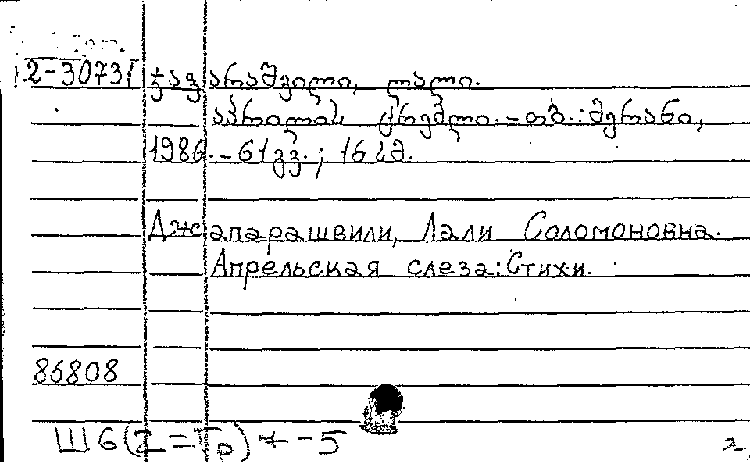 2-30731 ჯაფარაშვილი, ლალი.
აპრილის ცრემლი. - თბ. : მერანი,
1986. - 61 გვ. ; 16 სმ.
Джапарашвили, Лали Соломоновна.
Апрельская слеза: Стихи.
86808
Ш6(2=Гр)7-5